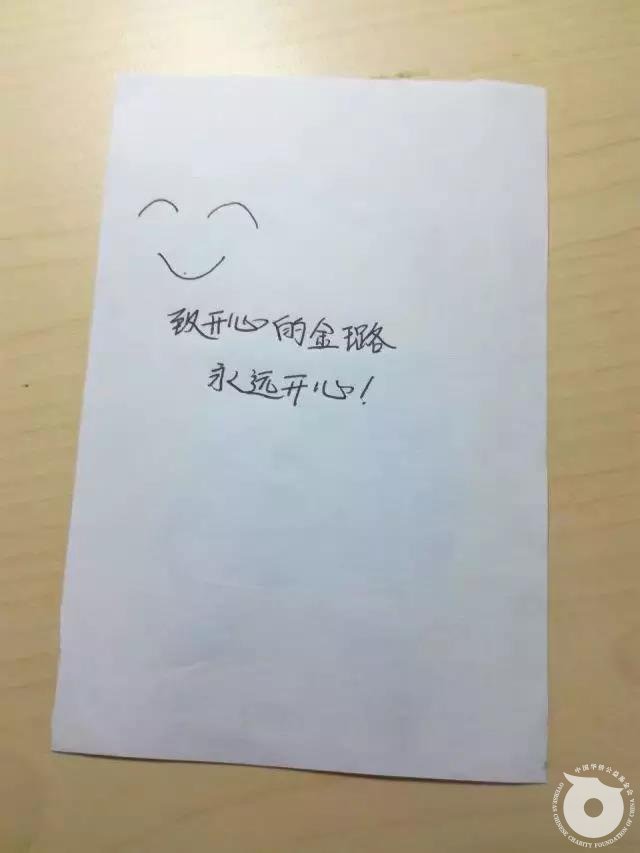 致开心的金璐
永远开心！
中国华侨公益基金会
OVERSEAS CHINESE CHARITY FOUNDATION OF CHINA